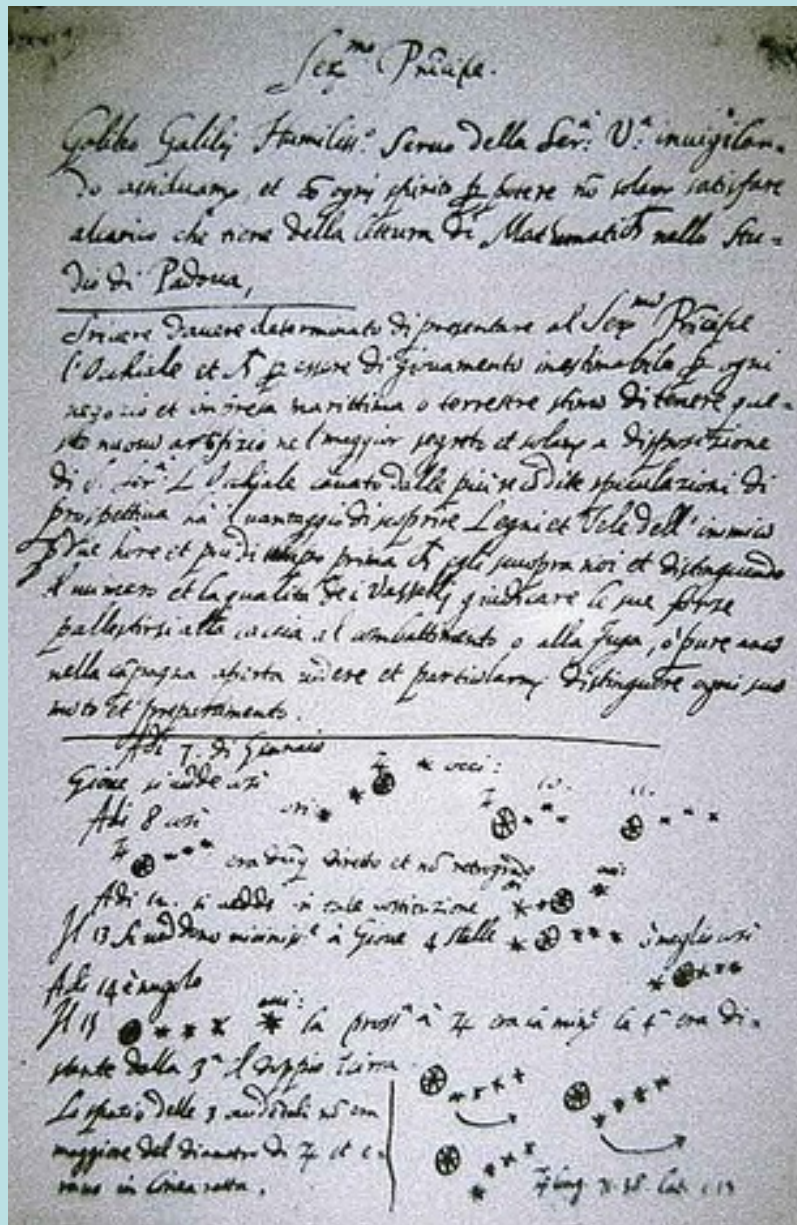 Ser.mo Principe.
Galileo Galilej Humiliss.o Servo della Ser.a V.a invigilan-
do assiduam.te, et cõ ogni spirito p potere nõ solam.te satisfare
alcarico che tiene della lettura di Mathematich nello Stu-
dio di Padova,
Scrivere davere determinato di presentare al Ser.mo Principe
l'Ochiale et p essere di giovamento inestimabile p ogni
negozio et impresa marittima o terrestre stima di tenere que-
sto nuovo artifizio nel maggior segreto et solam.te a disposizione
di S. Ser.a L'Ochiale cavato dalle piu recõdite speculazioni di
prospettiva ha il vantaggio di scoprire Legni et Vele dell'inimico
p due hore et piu di tempo prima ch egli scuopra noi et distinguendo
il numero et la qualita dei Vasselli giudicare le sue forze
pallestirsi alla caccia al combattimento o alla fuga, o pure anco
nella cãpagna aperta vedere et particularm.te distinguere ogni suo
moto et preparamento.
Adi 7. di Gennaio
Gione si vede così occi:
Adi 8 così ori:
♃ era dũq diretto et nõ retrogrado
Adi 12. si vedde in tale costituzione
Il 13 si veddono vicinis.e à Giove 4 stelle ò meglio così
Adi 14 è nugolo
Il 15 occ: la pross.a à ♃ era la min.e la 4.a era di-
stante dalla 3.a il doppio circa
Lo spazio delle 3 nõ era
maggiore del diametro di ♃ et e-
rano in linea retta.
♃ long. lat. 13